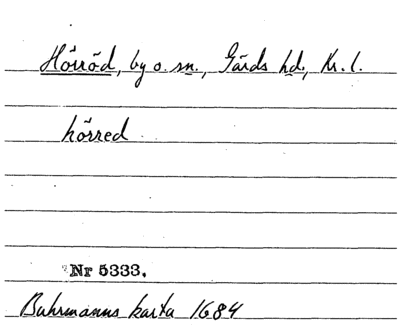 Hörröd, by o. sn., Gärds hd, Kr. l.
hörred
Nr 5333.
Buhrmanns karta 1684